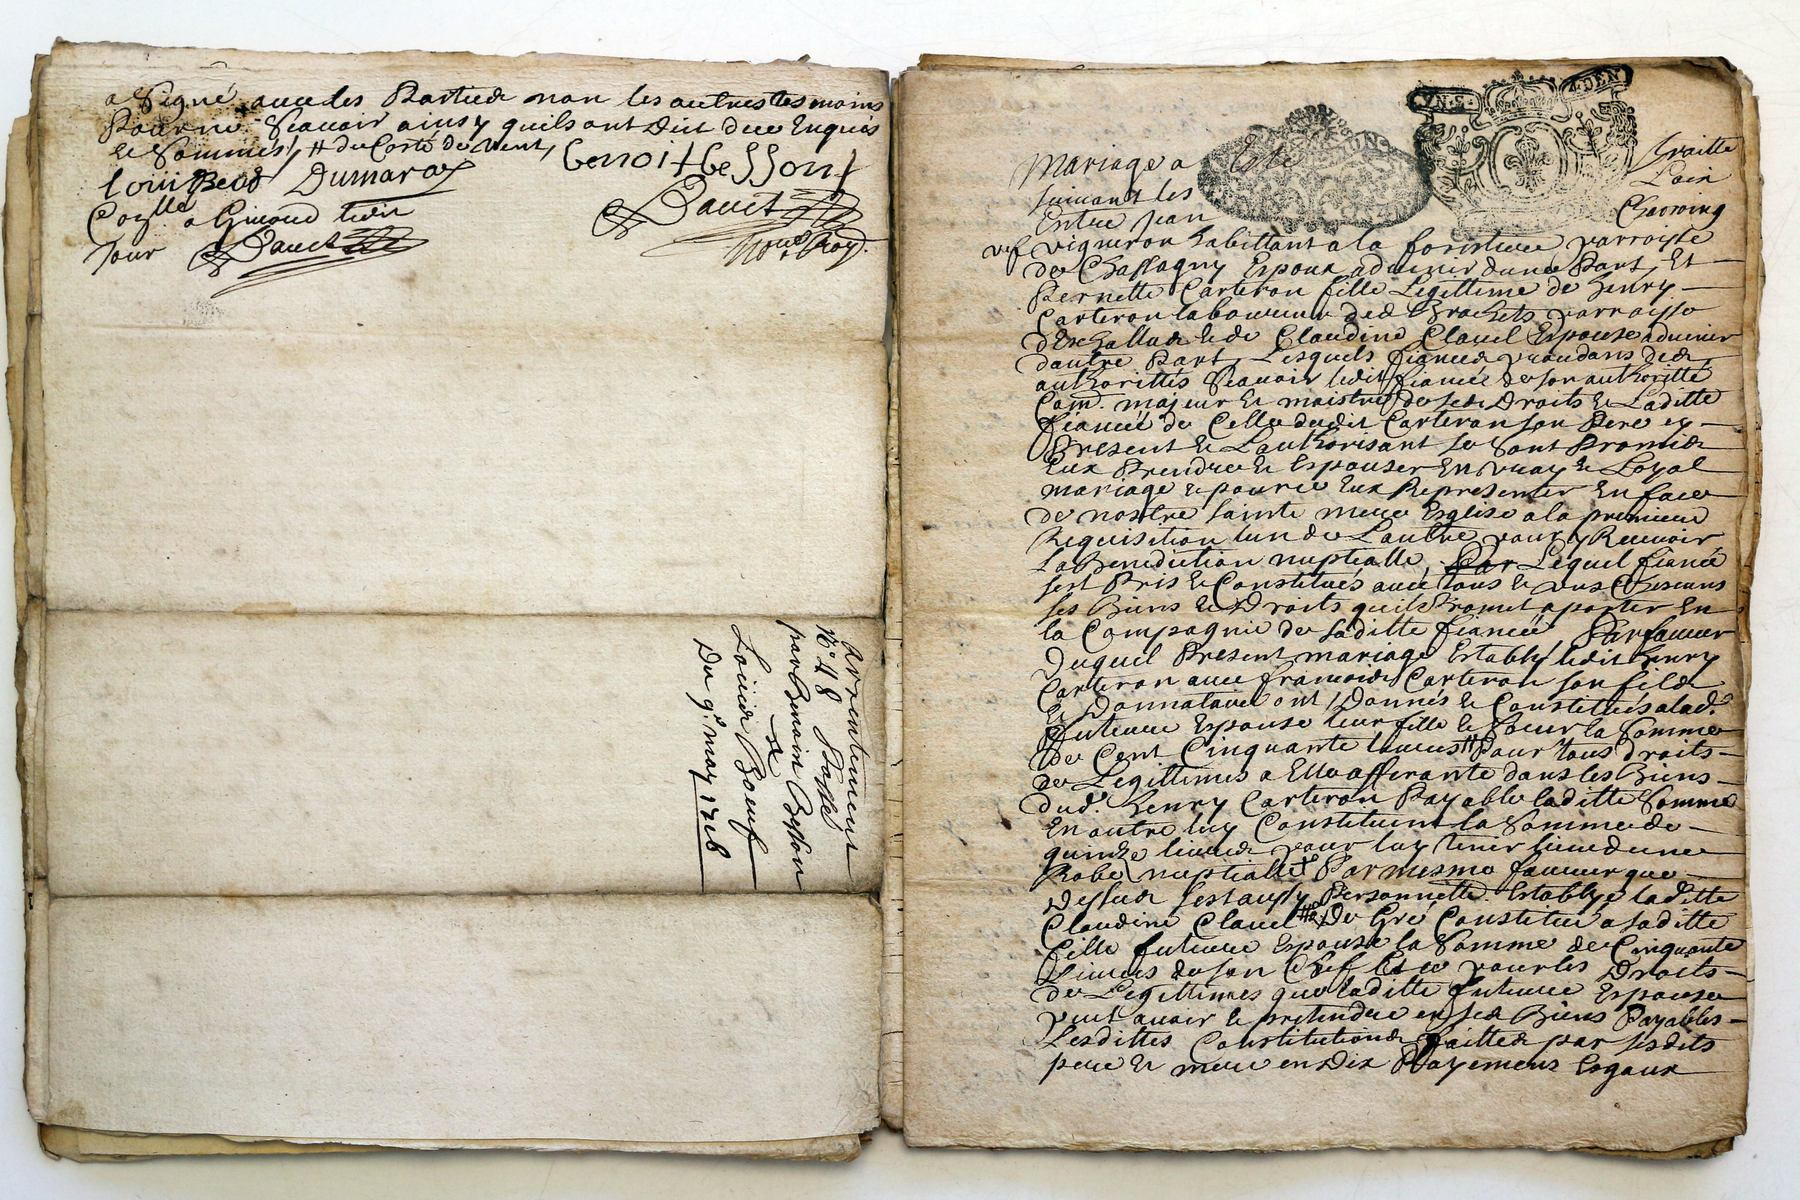 a Signé avec les Parties non les autres tesmoins
Pour ne Scavoir ainsy quils ont Dit de ce Enquis
et Sommés, # du Costé du Vent,
benoit besson
louis Beuf Dumaroy
Davet
Coylle a Givord ledit
Jour Davet
Noᵉ Roy.
aventement
N° 48 Passé
par Benoin Besson
a
Louis Boeuf
Du 9ᵉ may 1716
VN.S. 4.DEN
Mariage a Esté traitte
suivant les Loix
Entre Jean
vigneron habittant a la forestiere parroisse
de Chassagny Espoux advenir dune Part, Et
Pernette Carteron fille Legittime de henry
Carteron laboureur des Brochets parroisse
dEschallas et de Claudine Clavel Espouse advenir
dautre Part, Lesquels fiancés procedans des
authorittés Scavoir ledit fiancé de son authoritté
Com. majeur et maistre de ses Droits et Laditte
fiancée de Celle dudit Carteron son Pere cy
Present et Lauthorisant se Sont Promis
Eux Prendre et Espouser En vray et Loyal
mariage et pour ce Eux Representer En face
de nostre Sainte mere Esglise a la premiere
Requisition lun de Lautre pour y Recevoir
La Benediction nuptialle, Lequel fiancé
sest Pris et Constitués avec tous et uns Chescuns
ses Biens et Droits quil Promet aporter En
la Compagnie de saditte fiancée, Par faveur
duquel Present mariage Estably ledit henry
Carteron avec francois Carteron son fils
et Donnataire ont Donnés et Constitués a lad.
future Espouse leur fille et Soeur la Somme
de Cent Cinquante livres # Pour tous droits
de Legittimes a Elle afferante dans les Biens
dud. henry Carteron Payable laditte Somme
En outre luy Constituent la Somme de
quinze livres pour luy tenir lieu dune
Robe nuptialle + Par mesme faveur que
dessus sest aussy Personnelle. Establye laditte
Claudine Clavel # De Gré Constitue a saditte
fille future Espouse la Somme de Cinquante
Livres de son Chef Et ce pour les Droits
de Legittimes que laditte future Espouse
peut avoir et pretendre en ses Biens Payables
Lesdittes Constitutions faittes par sesdits
pere et mere en Dix Payemens Esgaux